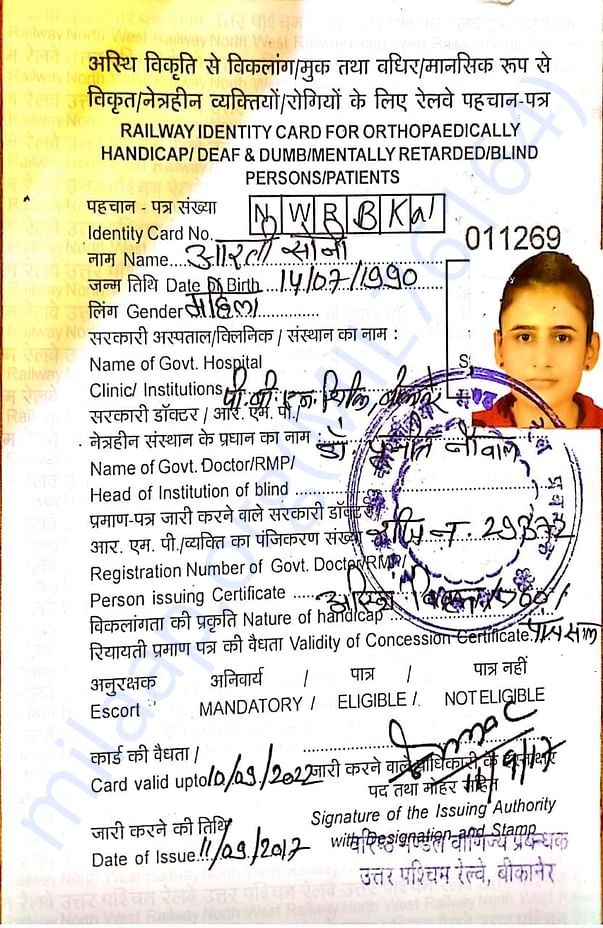 अस्थि विकृति से विकलांग/मुक तथा वधिर/मानसिक रूप से
विकृत/नेत्रहीन व्यक्तियों/रोगियों के लिए रेलवे पहचान-पत्र
RAILWAY IDENTITY CARD FOR ORTHOPAEDICALLY
HANDICAP/ DEAF & DUMB/MENTALLY RETARDED/BLIND
PERSONS/PATIENTS
पहचान - पत्र संख्या
Identity Card No. N W R B K
011269
नाम Name....आरती सोनी
जन्म तिथि Date of Birth ...14/07/1990
लिंग Gender महिला..............
सरकारी अस्पताल/क्लिनिक / संस्थान का नाम :
Name of Govt. Hospital
Clinic/ Institutions पी.बी.एम.
सरकारी डॉक्टर / आर. एम. पी./
नेत्रहीन संस्थान के प्रधान का नाम : डॉ
Name of Govt. Doctor/RMP/
Head of Institution of blind
प्रमाण-पत्र जारी करने वाले सरकारी डॉक्टर
आर. एम. पी./व्यक्ति का पंजिकरण संख्या 29372
Registration Number of Govt. Doctor/RMP/
Person issuing Certificate
विकलांगता की प्रकृति Nature of handicap अस्थि
रियायती प्रमाण पत्र की वैधता Validity of Concession Certificate. पांच साल
अनुरक्षक अनिवार्य / पात्र / पात्र नहीं
Escort MANDATORY / ELIGIBLE / NOT ELIGIBLE
कार्ड की वैधता /
Card valid upto 10/09/2022 जारी करने वाले प्राधिकारी के हस्ताक्षर
पद तथा मोहर सहित
11/9/17
Signature of the Issuing Authority
with Designation and Stamp
जारी करने की तिथि
Date of Issue. 11/09/2017
वरिष्ठ मण्डल वाणिज्य प्रबन्धक
उत्तर पश्चिम रेल्वे, बीकानेर
milaap.org(MIL76164)